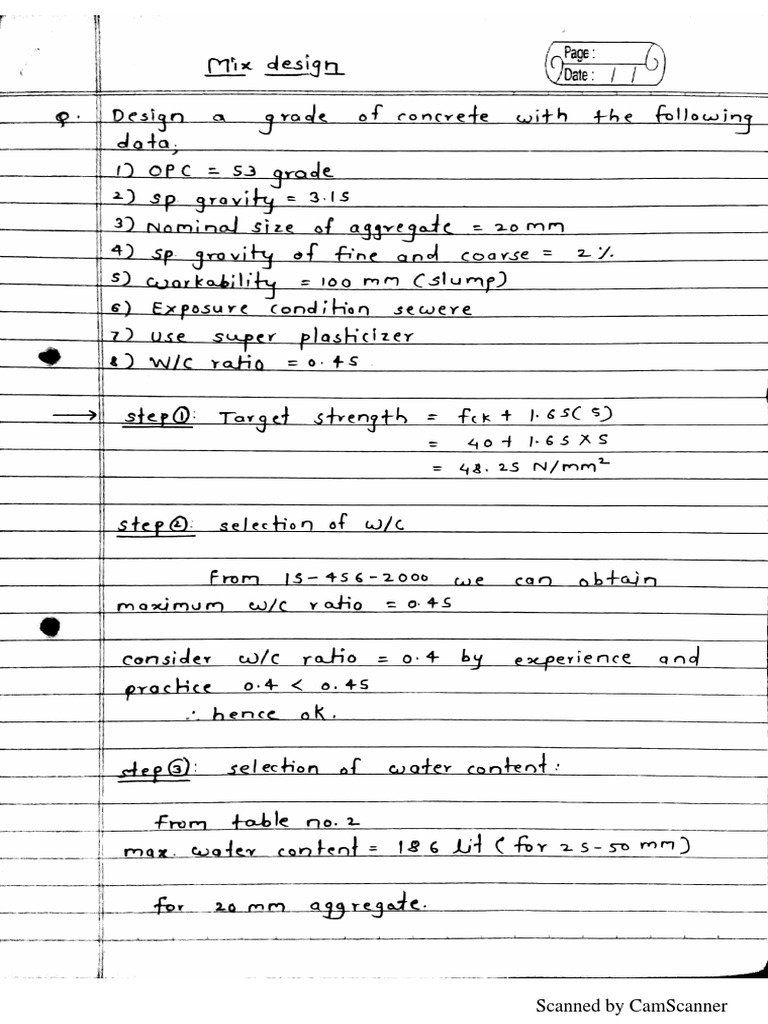 Mix design
Page :
Date : / /
Q. Design a grade of concrete with the following
data;
1) OPC = 53 grade
2) sp gravity = 3.15
3) Nominal size of aggregate = 20 mm
4) sp. gravity of fine and coarse = 2 %.
5) workability = 100 mm (slump)
6) Exposure condition sewere
7) use super plasticizer
8) W/C ratio = 0.45
→ step ①: Target strength = fck + 1.65(5)
= 40 + 1.65 × 5
= 48.25 N/mm²
step ②: selection of w/c
From IS-456-2000 we can obtain
maximum w/c ratio = 0.45
consider w/c ratio = 0.4 by experience and
practice 0.4 < 0.45
∴ hence ok.
step ③: selection of water content:
From table no. 2
max. water content = 186 lit (for 25-50 mm)
for 20 mm aggregate.
Scanned by CamScanner